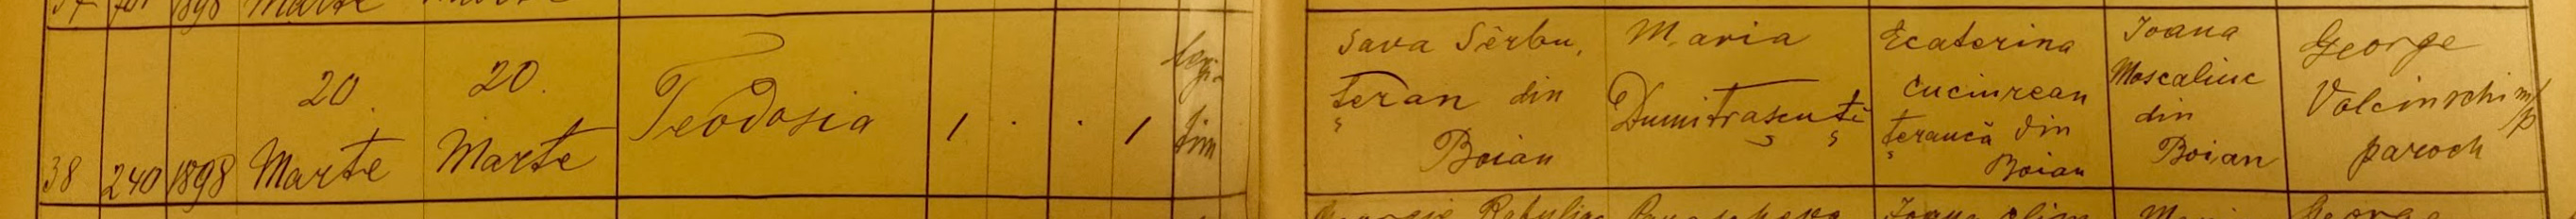 38 240 1898 20 Marte 20. Marte Teodosia , . . , legi-
tim
Sava Sêrbu,
țeran din
Boian
Maria
Dumitrașcuță
Ecaterina
Cuciurean
țerancă din
Boian
Ioana
Moscaliuc
din
Boian
George
Volcinschi m/p
paroch
George